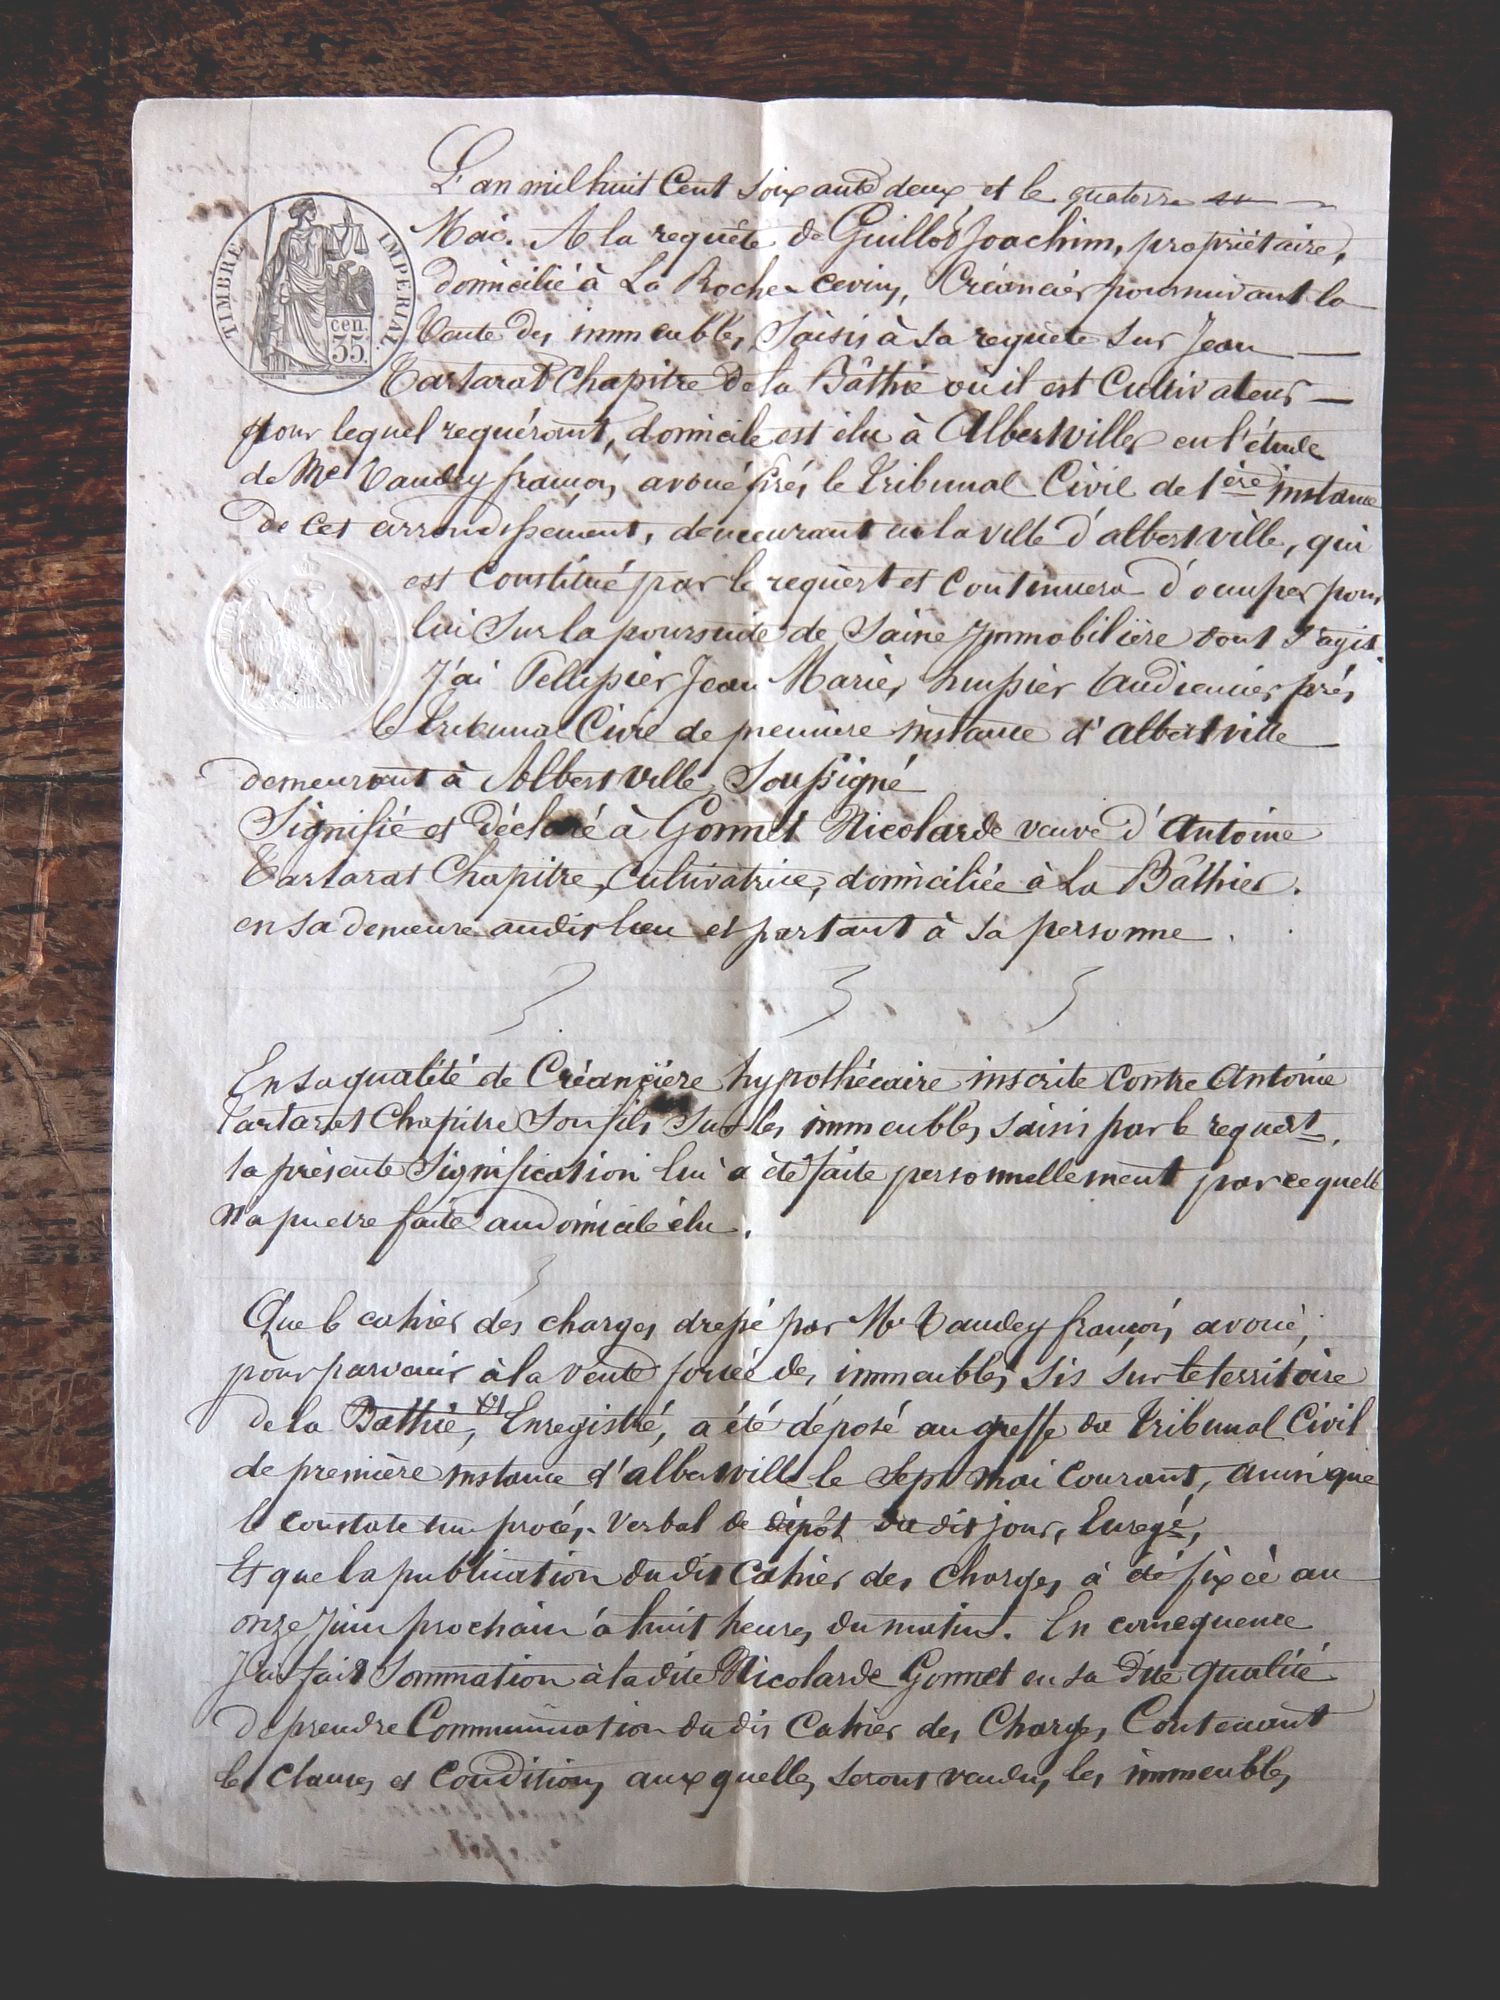 L'an mil huit Cent soixante deux et le quatorze
Mai. A la requête de Guillot Joachim, propriétaire,
domicilié à La Roche-cevins, Créancier poursuivant la
TIMBRE IMPERIAL
cen. 35
Vente des immeubles Saisis à sa requête sur Jean
Tartarat Chapitre de la Bâthie où il est Cultivateur
pour lequel requérant, domicile est élu à Albertville en l'étude
de Me Vaudey françois, avoué près le Tribunal Civil de 1ère instance
de cet arrondissement, demeurant en la ville d'albertville, qui
est Constitué par le requért et Continuera d'occuper pour
lui Sur la poursuite de Saisie Immobilière dont s'agit.
J'ai Pellissier Jean Marie, huissier Audiencier près
le Tribunal Civil de première instance d'albertville
demeurant à Albertville, Soussigné
Signifié et Déclaré à Gonnet Nicolarde veuve d'Antoine
Tartarat Chapitre, Cultivatrice, domiciliée à La Bâthie.
en sa demeure audit lieu et partant à sa personne.
En sa qualité de Créancière hypothécaire inscrite Contre Antoine
Tartarat Chapitre Son fils Sur les immeubles saisis par le requert,
la présente Signification lui a été faite personnellement parcequelle
n'a pu etre faite au domicile élu.
Que le cahier des charges dressé par Me Vaudey françois, avoué,
pour parvenir à la vente forcée des immeubles sis sur le territoire
de la Bathie, Enregistré, a été déposé au greffe du Tribunal Civil
de première instance d'albertville le Sept Mai Courant, ainsi que
le constate un procès-verbal de dépôt du dit jour, Enregé,
Et que la publication du dit Cahier des Charges à été fixée au
onze Juin prochain à huit heures du matin. En consequence
J'ai fait Sommation à la dite Nicolarde Gonnet en sa dite qualité
de prendre Communication du dit Cahier des Charges Contenant
les Clauses et Conditions auxquelles seront vendus les immeubles